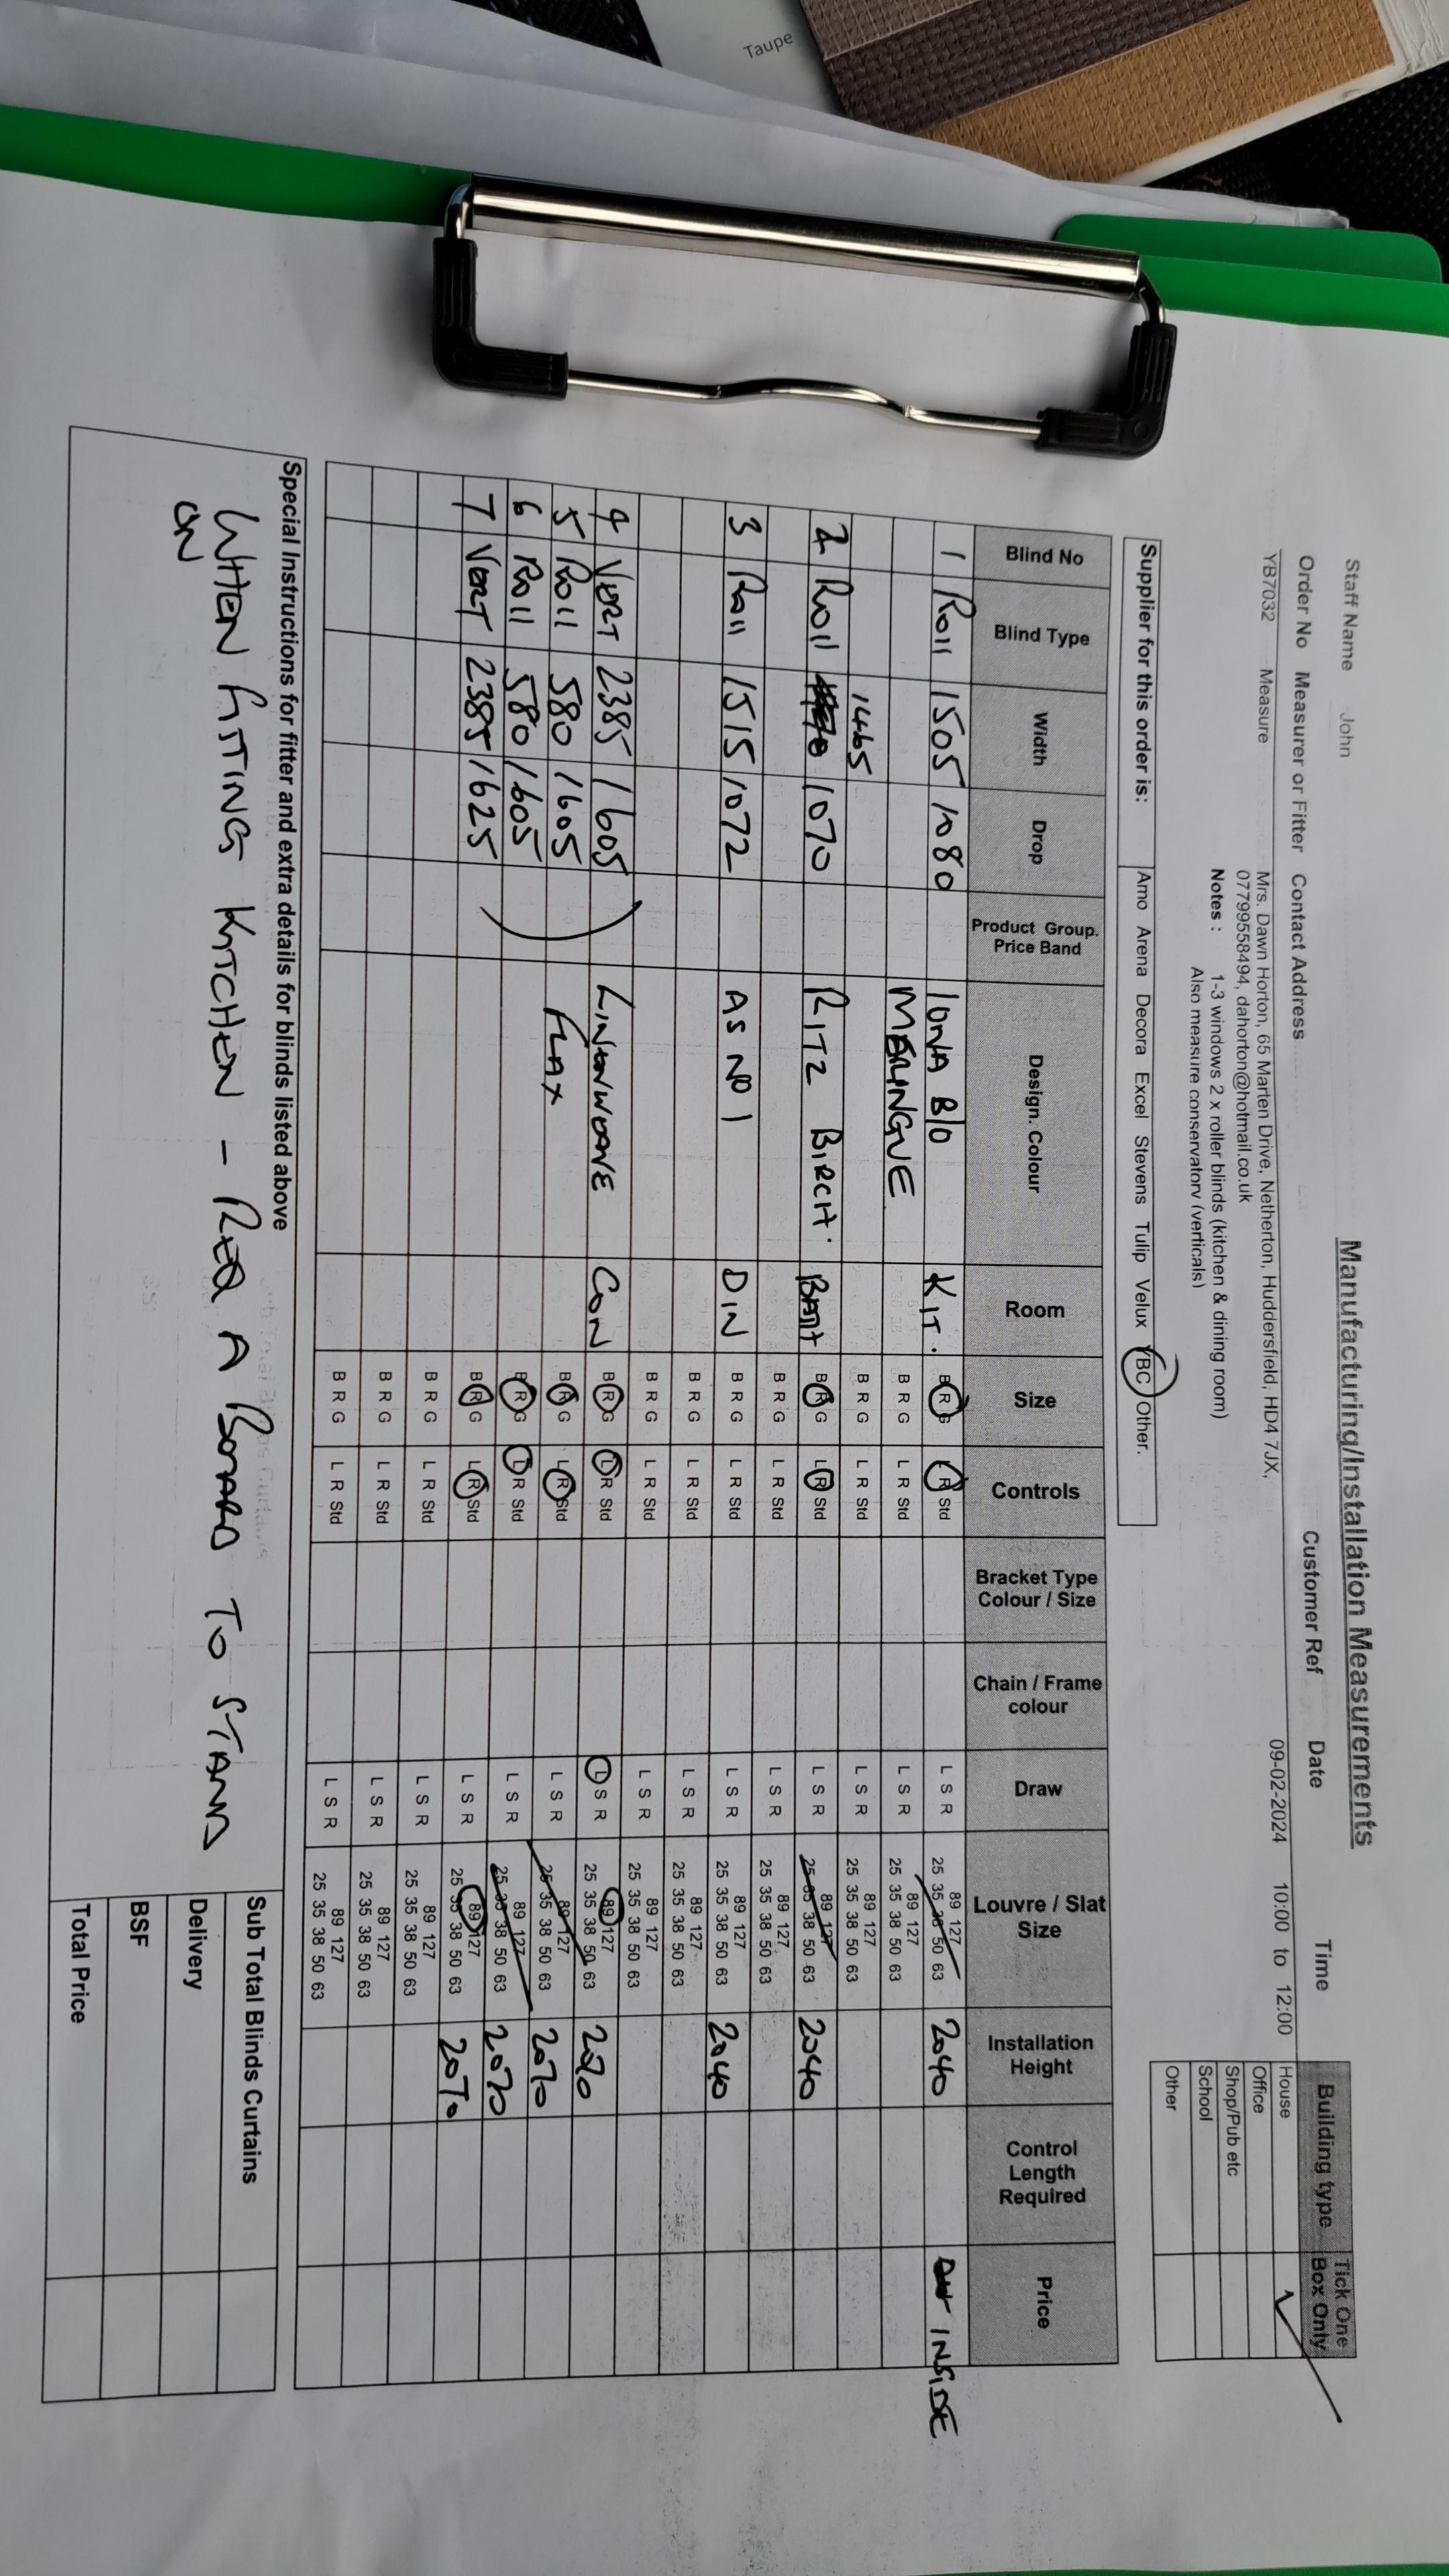 Taupe
Manufacturing/Installation Measurements
Staff Name John
Order No Measurer or Fitter Contact Address Customer Ref Date Time
YB7032 Measure Mrs. Dawn Horton, 65 Marten Drive, Netherton, Huddersfield, HD4 7JX, 09-02-2024 10:00 to 12:00
07799558494, dahorton@hotmail.co.uk
Notes : 1-3 windows 2 x roller blinds (kitchen & dining room)
Also measure conservatory (verticals)
Building type Tick One Box Only
House ✓
Office
Shop/Pub etc
School
Other
Supplier for this order is: Amo Arena Decora Excel Stevens Tulip Velux YBC Other.
Blind No Blind Type Width Drop Product Group. Price Band Design. Colour Room Size Controls Bracket Type Colour / Size Chain / Frame colour Draw Louvre / Slat Size Installation Height Control Length Required Price
1 Roll 1505 1080 IONA B/O KIT. B R G L R Std L S R 89 127 25 35 38 50 63 2040 INSIDE
MERINGUE B R G L R Std L S R 89 127 25 35 38 50 63
1465 B R G L R Std L S R 89 127 25 35 38 50 63
2 Roll 1070 RITZ BIRCH. B R G L R Std L S R 89 127 25 35 38 50 63 2040
B R G L R Std L S R 89 127 25 35 38 50 63
3 Roll 1515 1072 AS NO 1 DIN B R G L R Std L S R 89 127 25 35 38 50 63 2040
B R G L R Std L S R 89 127 25 35 38 50 63
B R G L R Std L S R 89 127 25 35 38 50 63
4 VERT 2385 1605 LINENWEAVE CON B R G L R Std L S R 89 127 25 35 38 50 63 2070
5 Roll 580 1605 FLAX B R G L R Std L S R 89 127 25 35 38 50 63 2070
6 Roll 580 1605 B R G L R Std L S R 89 127 25 35 38 50 63 2070
7 VERT 2385 1625 B R G L R Std L S R 89 127 25 35 38 50 63 2070
B R G L R Std L S R 89 127 25 35 38 50 63
B R G L R Std L S R 89 127 25 35 38 50 63
B R G L R Std L S R 89 127 25 35 38 50 63
Special Instructions for fitter and extra details for blinds listed above
WHEN FITTING KITCHEN - REQ A BOARD TO STAND
ON
Sub Total Blinds Curtains
Delivery
BSF
Total Price